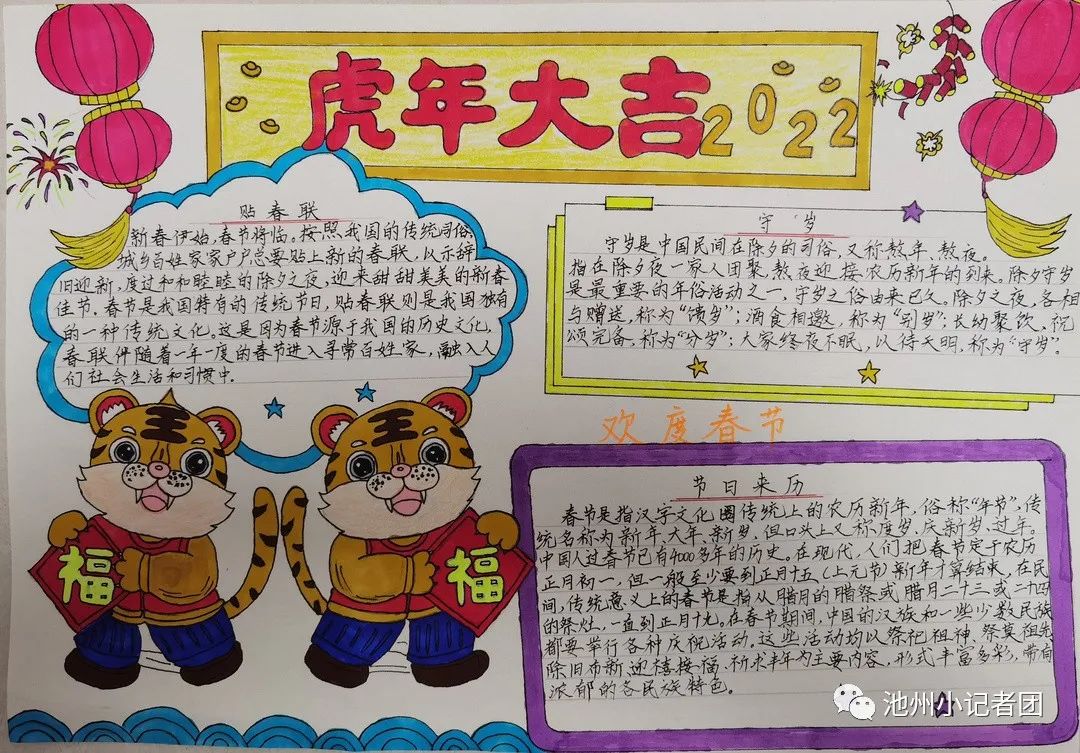 虎年大吉2022
贴春联
新春伊始,春节将临。按照我国的传统习俗,
城乡百姓家家户户总要贴上新的春联,以示辞
旧迎新,度过和和睦睦的除夕之夜,迎来甜甜美美的新春
佳节。春节是我国特有的传统节日,贴春联则是我国独有
的一种传统文化。这是因为春节源于我国的历史文化,
春联伴随着一年一度的春节进入寻常百姓家,融入人
们社会生活和习惯中.
守岁
守岁是中国民间在除夕的习俗,又称熬年、熬夜。
指在除夕夜一家人团聚,熬夜迎接农历新年的到来。除夕守岁
是最重要的年俗活动之一,守岁之俗由来已久。除夕之夜,各相
与赠送,称为“馈岁”;酒食相邀,称为“别岁”;长幼聚饮,祝
颂完备,称为“分岁”;大家终夜不眠,以待天明,称为“守岁”。
欢度春节
节日来历
春节是指汉字文化圈传统上的农历新年,俗称“年节”,传
统名称为新年、大年、新岁,但口头上又称度岁、庆新岁、过年。
中国人过春节已有4000多年的历史。在现代,人们把春节定于农历
正月初一,但一般至少要到正月十五(上元节)新年才算结束,在民
间,传统意义上的春节是指从腊月的腊祭或腊月二十三或二十四
的祭灶,一直到正月十九。在春节期间,中国的汉族和一些少数民族
都要举行各种庆祝活动.这些活动均以祭祀祖神、祭奠祖先
除旧布新迎禧接福、祈求丰年为主要内容,形式丰富多彩,带有
浓郁的各民族特色。
王
王
福
福
池州小记者团